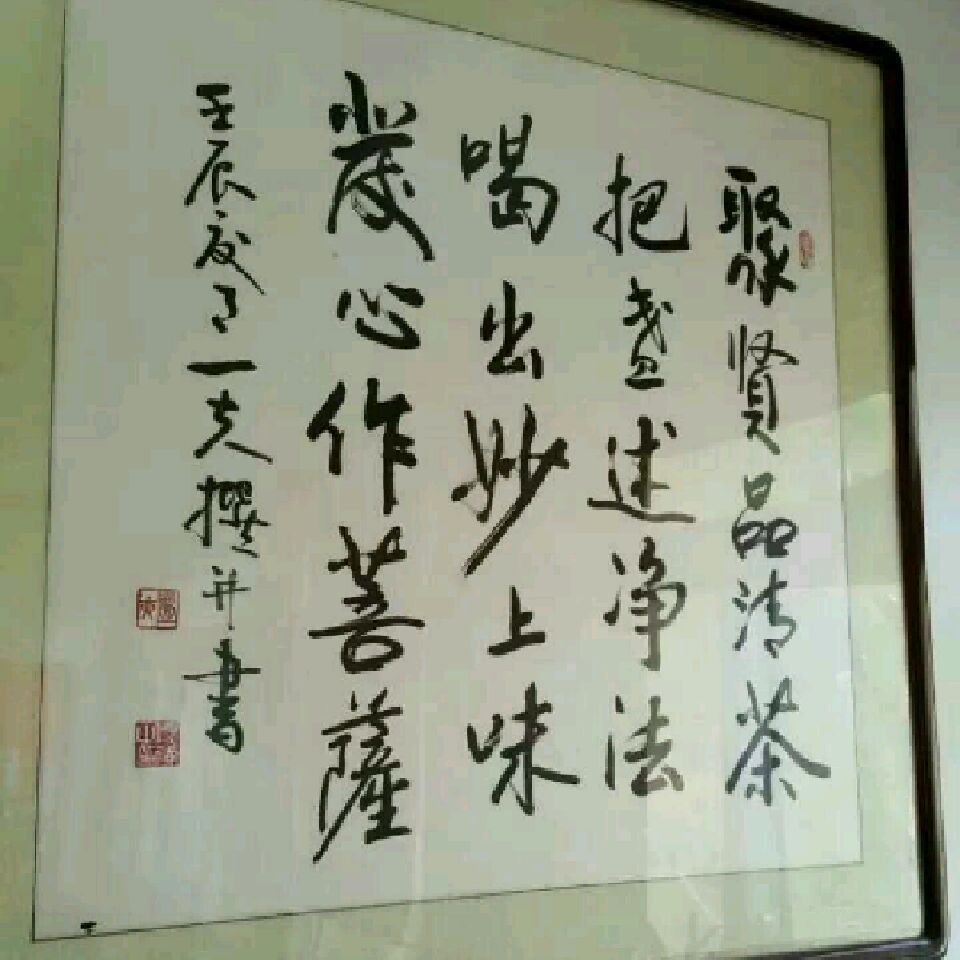 聚贤品清茶
把盏述净法
喝出妙上味
发心作菩萨
壬辰夏月一夫撰并书